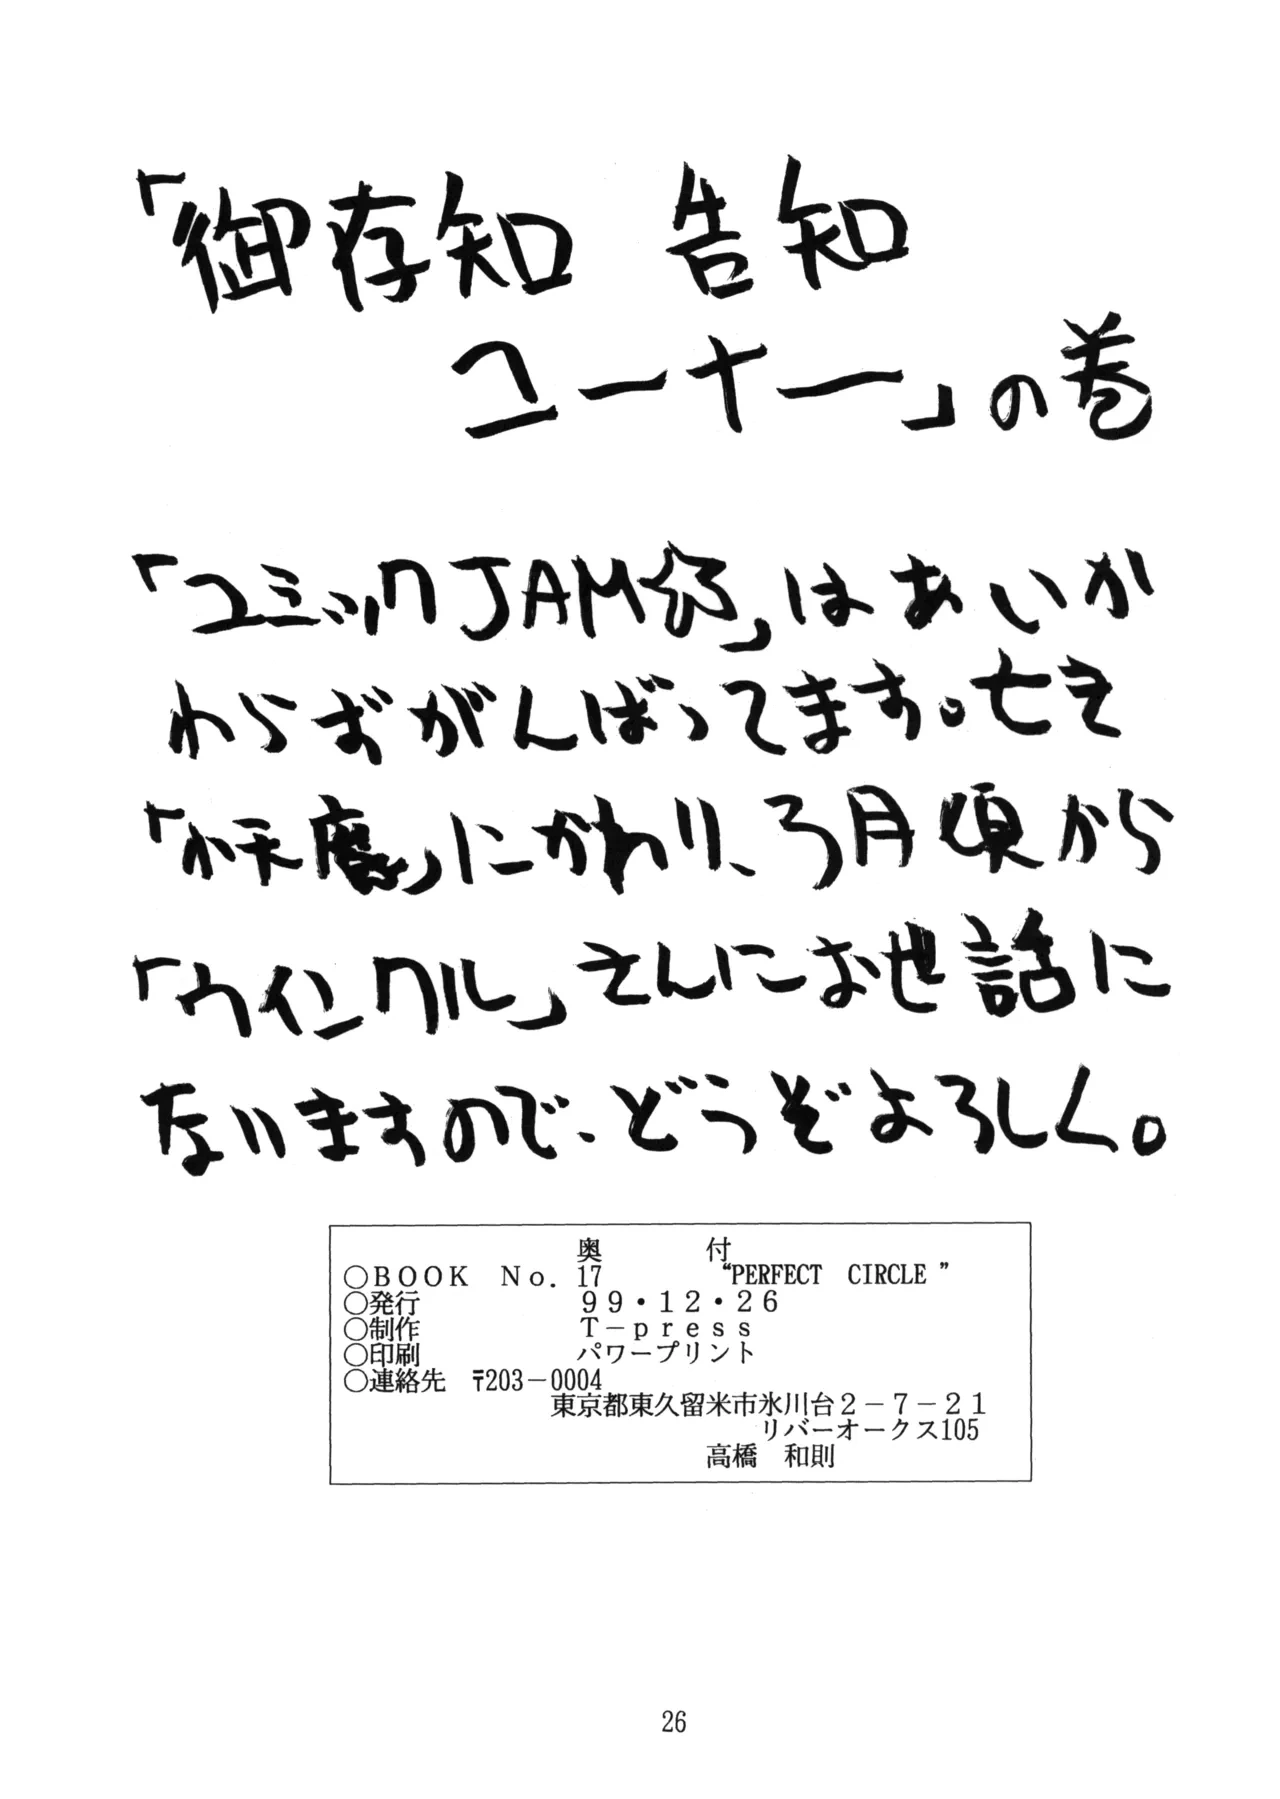 「御存知 告知
コーナー」の巻
「コミックJAM系」はあいか
わらずがんばってます。亡き
「小天魔」にかわり、3月頃から
「ウインクル」さんにお世話に
なりますので、どうぞよろしく。
奥 付
○BOOK No. 17 “PERFECT CIRCLE ”
○発行 99・12・26
○制作 T-press
○印刷 パワープリント
○連絡先 〒203-0004
東京都東久留米市氷川台2-7-21
リバーオークス105
高橋 和則
26